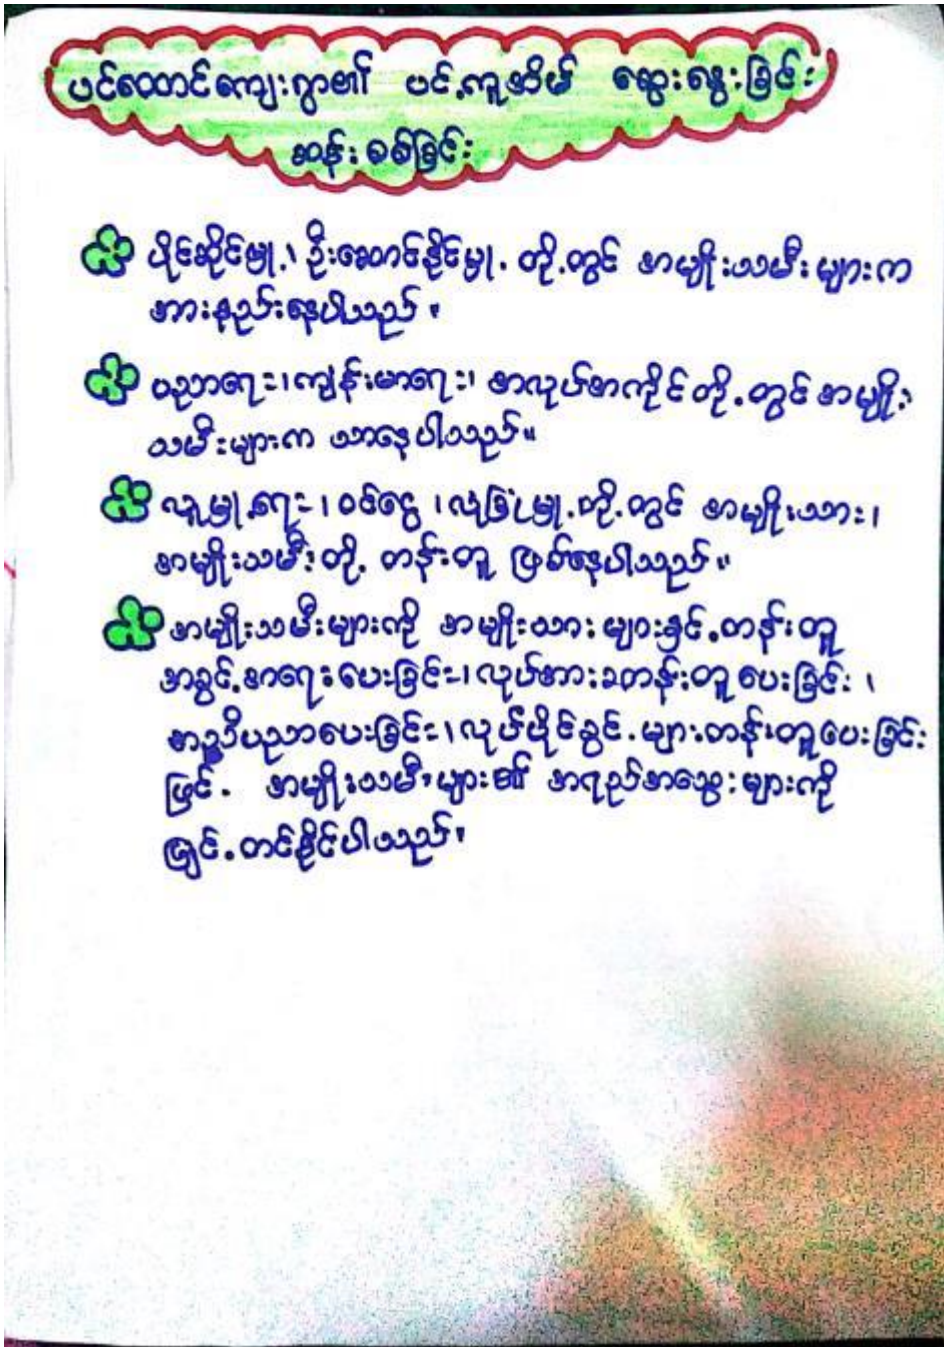 ပင်ထောင်ကျေးရွာ၏ ပင့်ကူအိမ် ဆွေးနွေးခြင်း
ဆန်းစစ်ခြင်း
ပိုင်ဆိုင်မှု့၊ ဦးဆောင်နိုင်မှု့ တို့တွင် အမျိုးသမီးများက
အားနည်းနေပါသည်။
ပညာရေး၊ ကျန်းမာရေး၊ အလုပ်အကိုင်တို့တွင် အမျိုး
သမီးများက သာနေပါသည်။
လူမှု့ရေး၊ ဝင်ငွေ၊ လုံခြုံမှု့တို့တွင် အမျိုးသား၊
အမျိုးသမီးတို့ တန်းတူ ဖြစ်နေပါသည်။
အမျိုးသမီးများကို အမျိုးသားများနှင့်တန်းတူ
အခွင့်အရေးပေးခြင်း၊ လုပ်အားခတန်းတူပေးခြင်း၊
အသိပညာပေးခြင်း၊ လုပ်ပိုင်ခွင့်များတန်းတူပေးခြင်း
ဖြင့် အမျိုးသမီးများ၏ အရည်အသွေးများကို
မြှင့်တင်နိုင်ပါသည်။